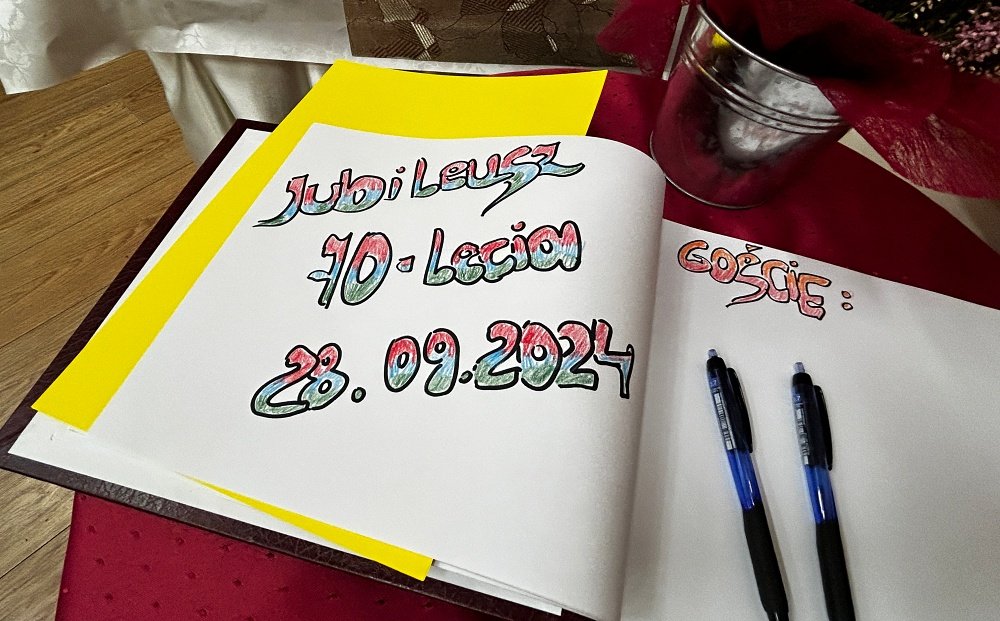 Jubileusz
70-Lecia
28.09.2024
GOŚCIE: